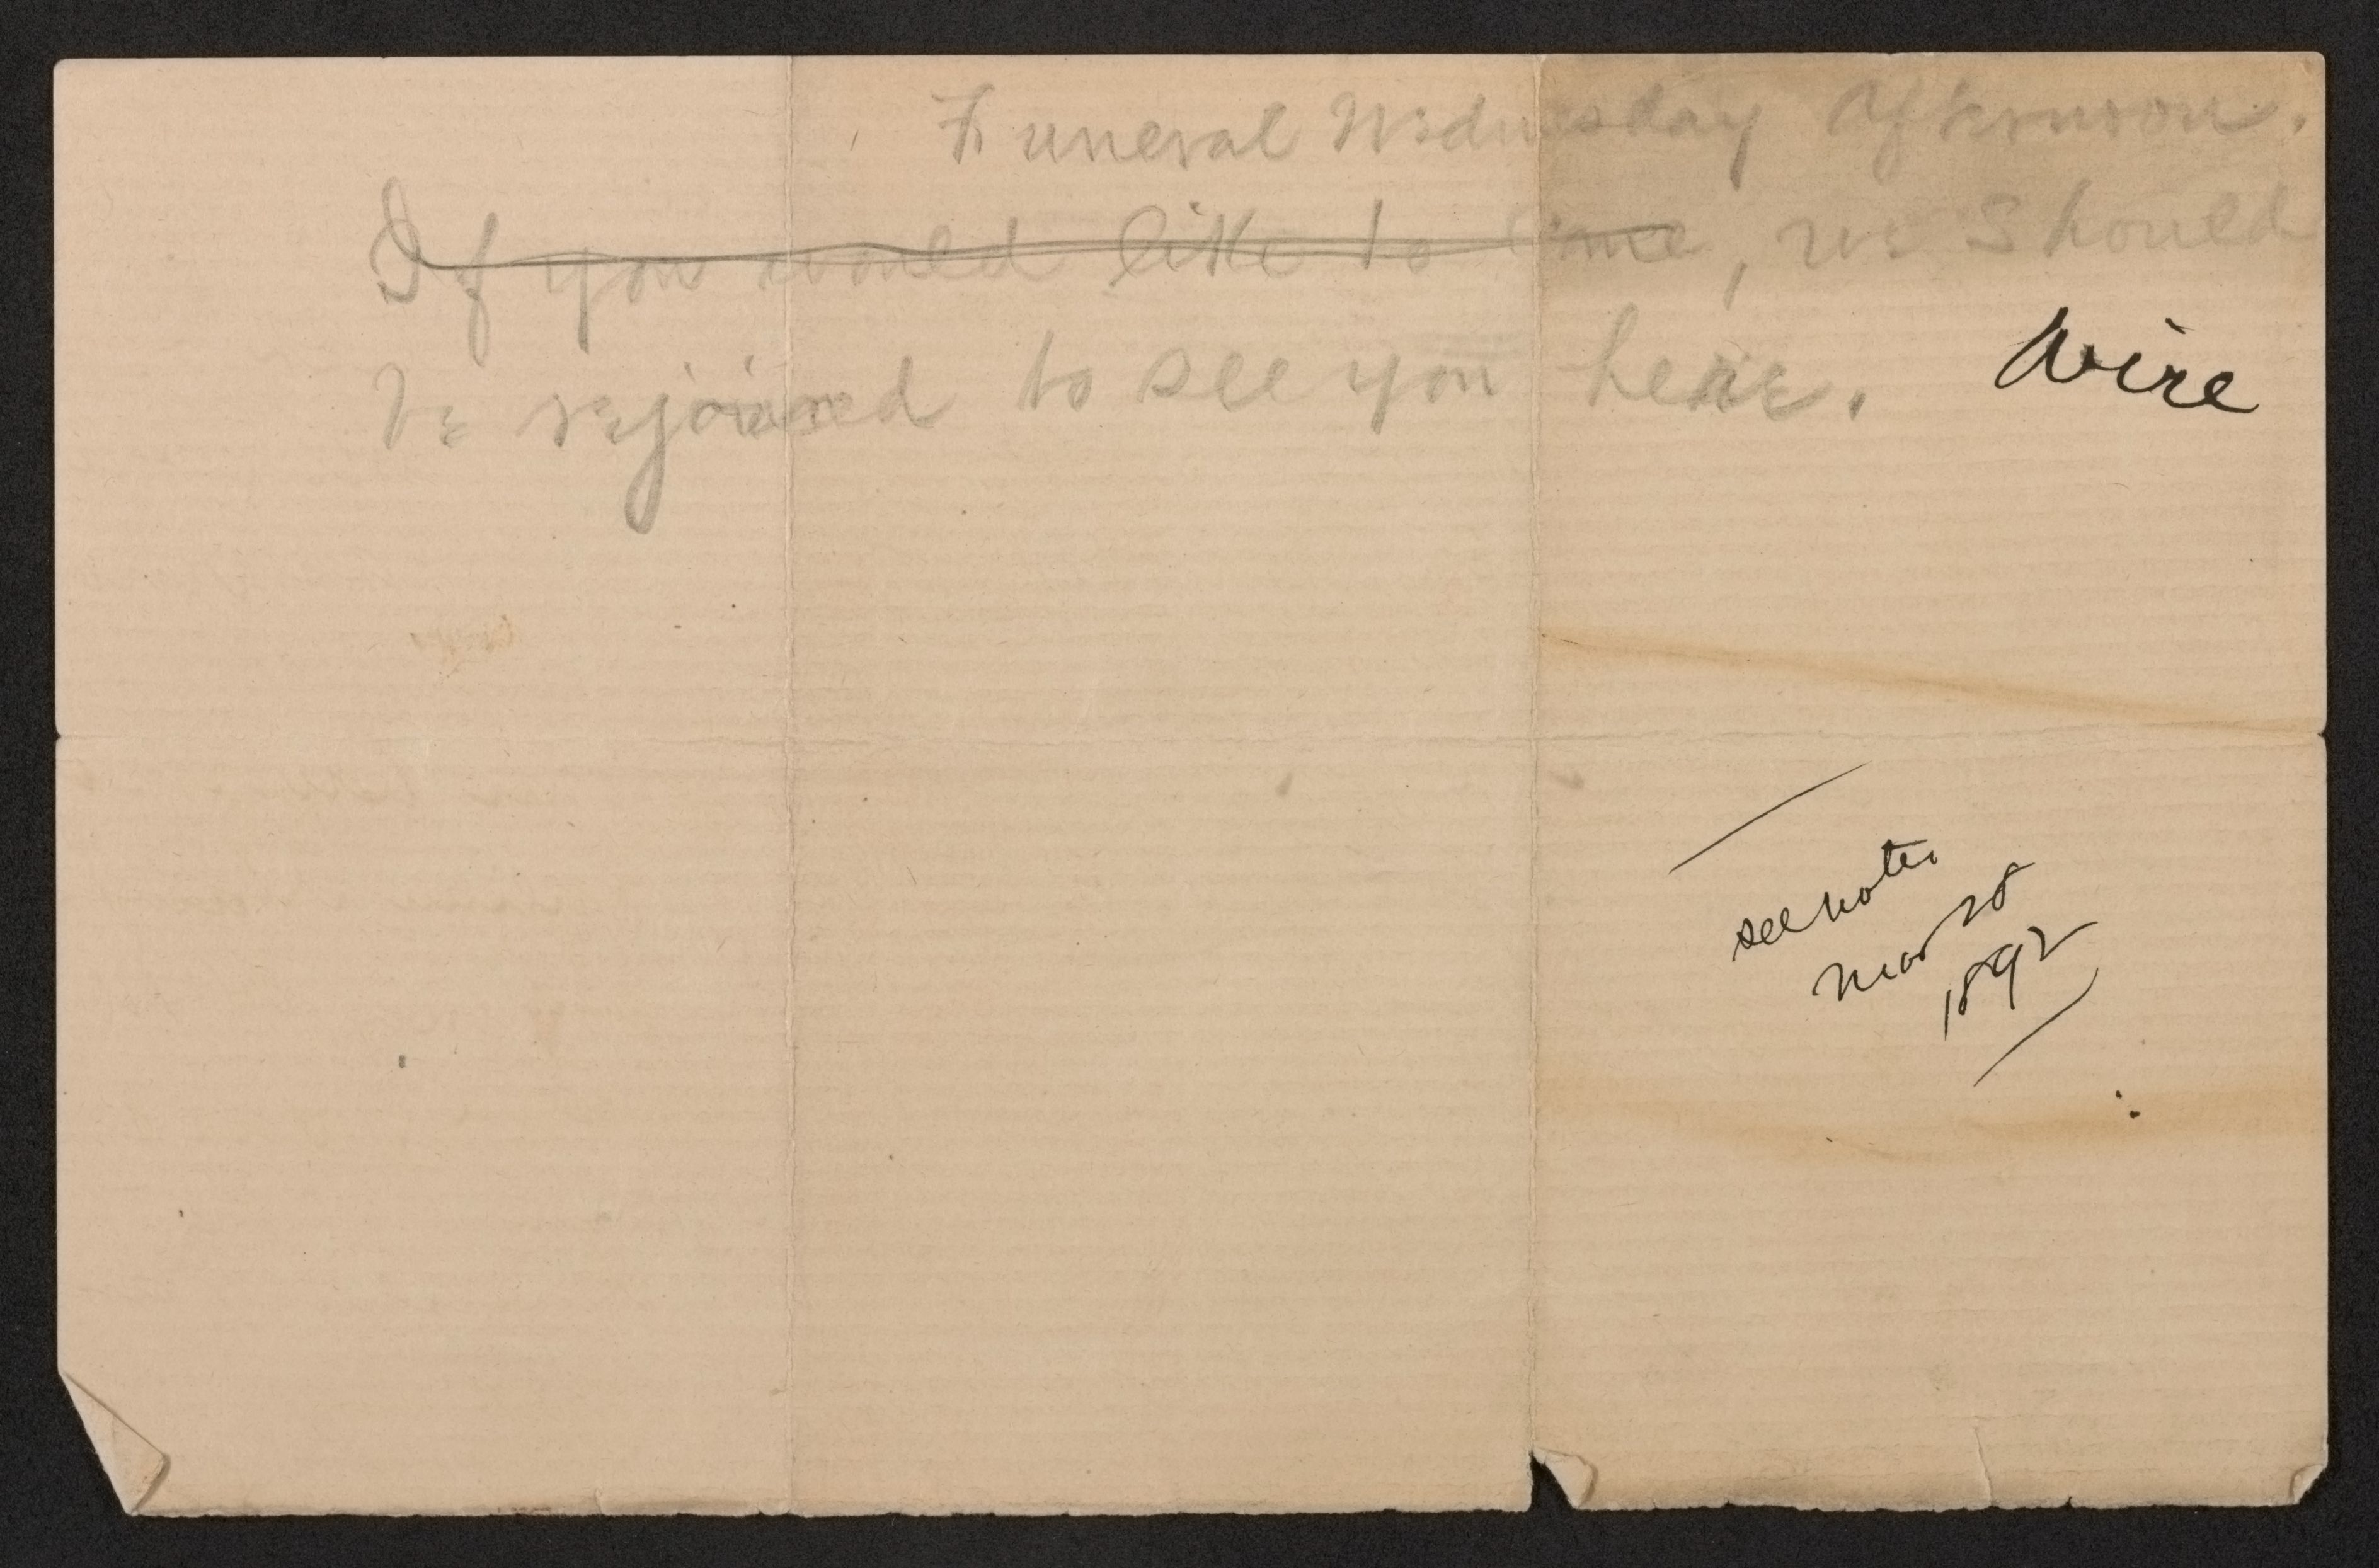 Funeral Wednesday afternoon.
If you would like to come, we should
be rejoiced to see you here. Wire
see notes
Mar 28
1892